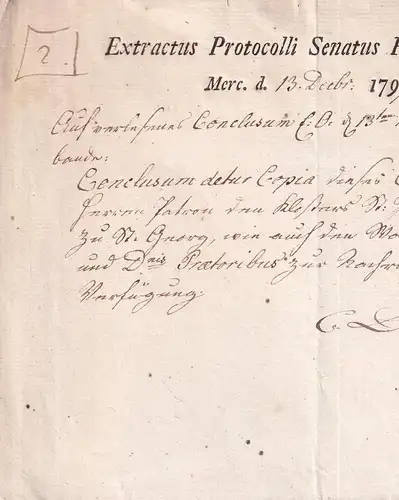 2.
Extractus Protocolli Senatus
Merc. d. 13. Decbr. 179
Auf verlesenes Conclusum E. O. d 13ten
bande:
Conclusum detur Copia dieses
Herren Patron den Klosters St:
zu St. Georg, wie auch den
und Dnis Prætoribus zur Nachri
Verfügung.